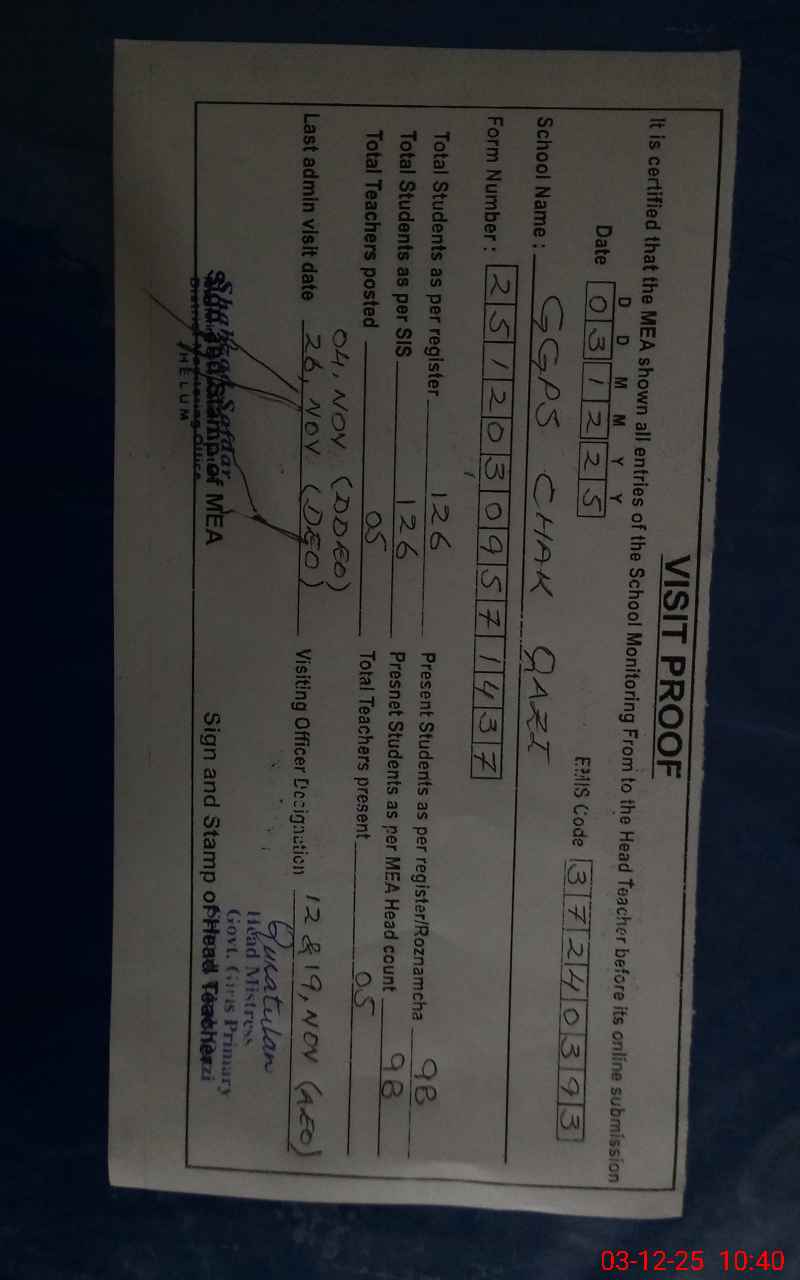 VISIT PROOF
It is certified that the MEA shown all entries of the School Monitoring From to the Head Teacher before its online submission
D D M M Y Y
Date 031225 EMIS Code 37240393
School Name : GGPS CHAK QAZI
Form Number : 25120309571437
Total Students as per register 126 Present Students as per register/Roznamcha 98
Total Students as per SIS 126 Presnet Students as per MEA Head count 98
Total Teachers posted 05 Total Teachers present 05
04, NOV (DDEO)
Last admin visit date 26, NOV (DEO) Visiting Officer Designation 12 & 19, NOV (AEO)
Quratulan
Head Mistress
Govt. Girls Primary
Sign and Stamp of MEA Sign and Stamp of Head Teacher
Safdar
JHELUM
03-12-25 10:40